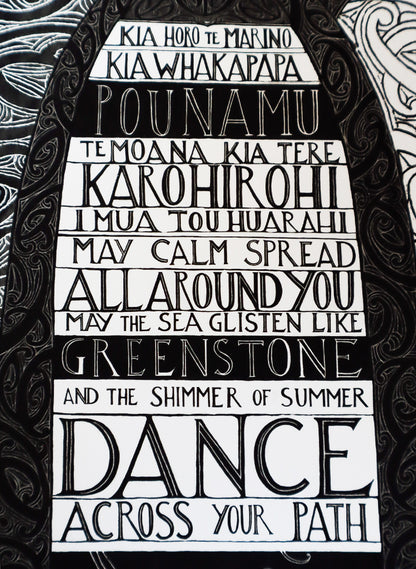 KIA HORO TE MARINO
KIA WHAKAPAPA
POUNAMU
TE MOANA KIA TERE
KAROHIROHI
I MUA TOU HUARAHI
MAY CALM SPREAD
ALL AROUND YOU
MAY THE SEA GLISTEN LIKE
GREENSTONE
AND THE SHIMMER OF SUMMER
DANCE
ACROSS YOUR PATH